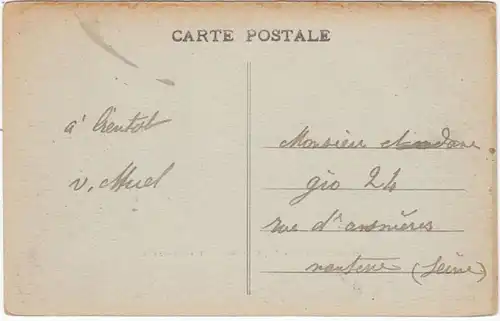 CARTE POSTALE
à bientôt
V. Muel
Monsieur Madame
gio 24
rue d'asnières
nanterre (Seine)